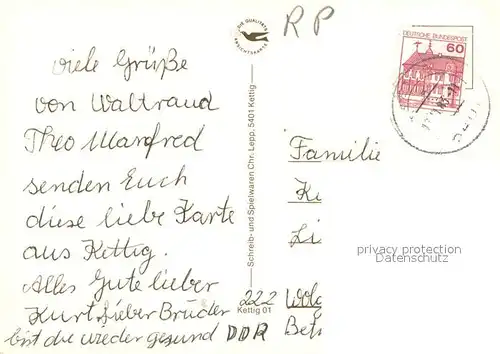 DIE QUALITÄTS
ANSICHTSKARTE
R P
DEUTSCHE BUNDESPOST
60
viele Grüße
von Waltraud
Theo Manfred
senden Euch
diese liebe Karte
aus Kettig.
Alles Gute lieber
Kurt, lieber Brüder
bist du wieder gesund
Schreib- und Spielwaren Chr. Lepp, 5401 Kettig
Kettig 01
Familie
privacy protection
Datenschutz
222
DDR